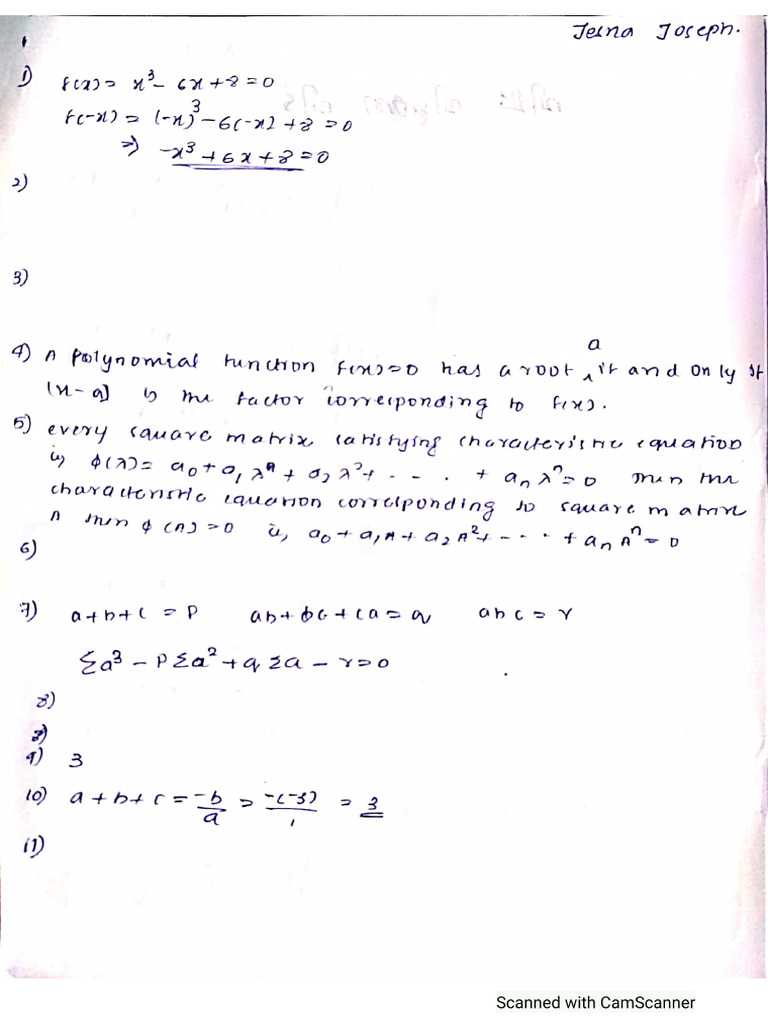 Jesna Joseph.
1) f(x) = x³ - 6x + 8 = 0
f(-x) = (-x)³ - 6(-x) + 8 = 0
⇒ -x³ + 6x + 8 = 0
2)
3)
4) A polynomial function f(x) = 0 has a root a if and only if
(x - a) is the factor corresponding to f(x).
5) every square matrix satisfying characteristic equation
is, φ(λ) = a₀ + a₁λ + a₂λ² + - - - + aₙλⁿ = 0 then the
characteristic equation corresponding to square matrix
A then φ(A) = 0 ie, a₀ + a₁A + a₂A² + - - - + aₙAⁿ = 0
6)
7) a + b + c = p ab + bc + ca = q abc = r
Σa³ - pΣa² + qΣa - r = 0
8)
9) 3
10) a + b + c = -b/a = -(-3)/1 = 3
11)
Scanned with CamScanner